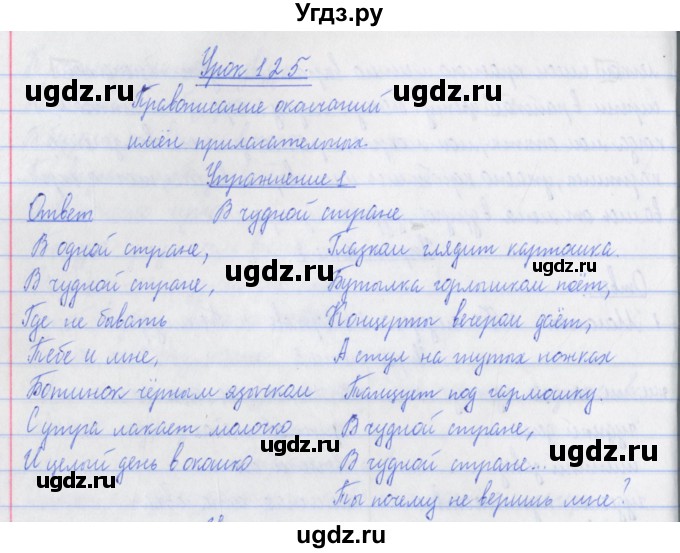 Угдз.ру
Урок 125.
Правописание окончаний
имён прилагательных.
Упражнение 1
Ответ
В чудной стране
В одной стране,
В чудной стране,
Где не бывать
Тебе и мне,
Ботинок чёрным язычком
С утра лакает молочко
И целый день в окошко
Глазком глядит картошка.
Бутылка горлышком поёт,
Концерты вечером даёт,
А стул на гнутых ножках
Танцует под гармошку.
В чудной стране,
В чудной стране...
Ты почему не веришь мне?
ugdz.ru
ugdz.ru
ugdz.ru
ugdz.ru
ugdz.ru
ugdz.ru
ugdz.ru
ugdz.ru
ugdz.ru
ugdz.ru